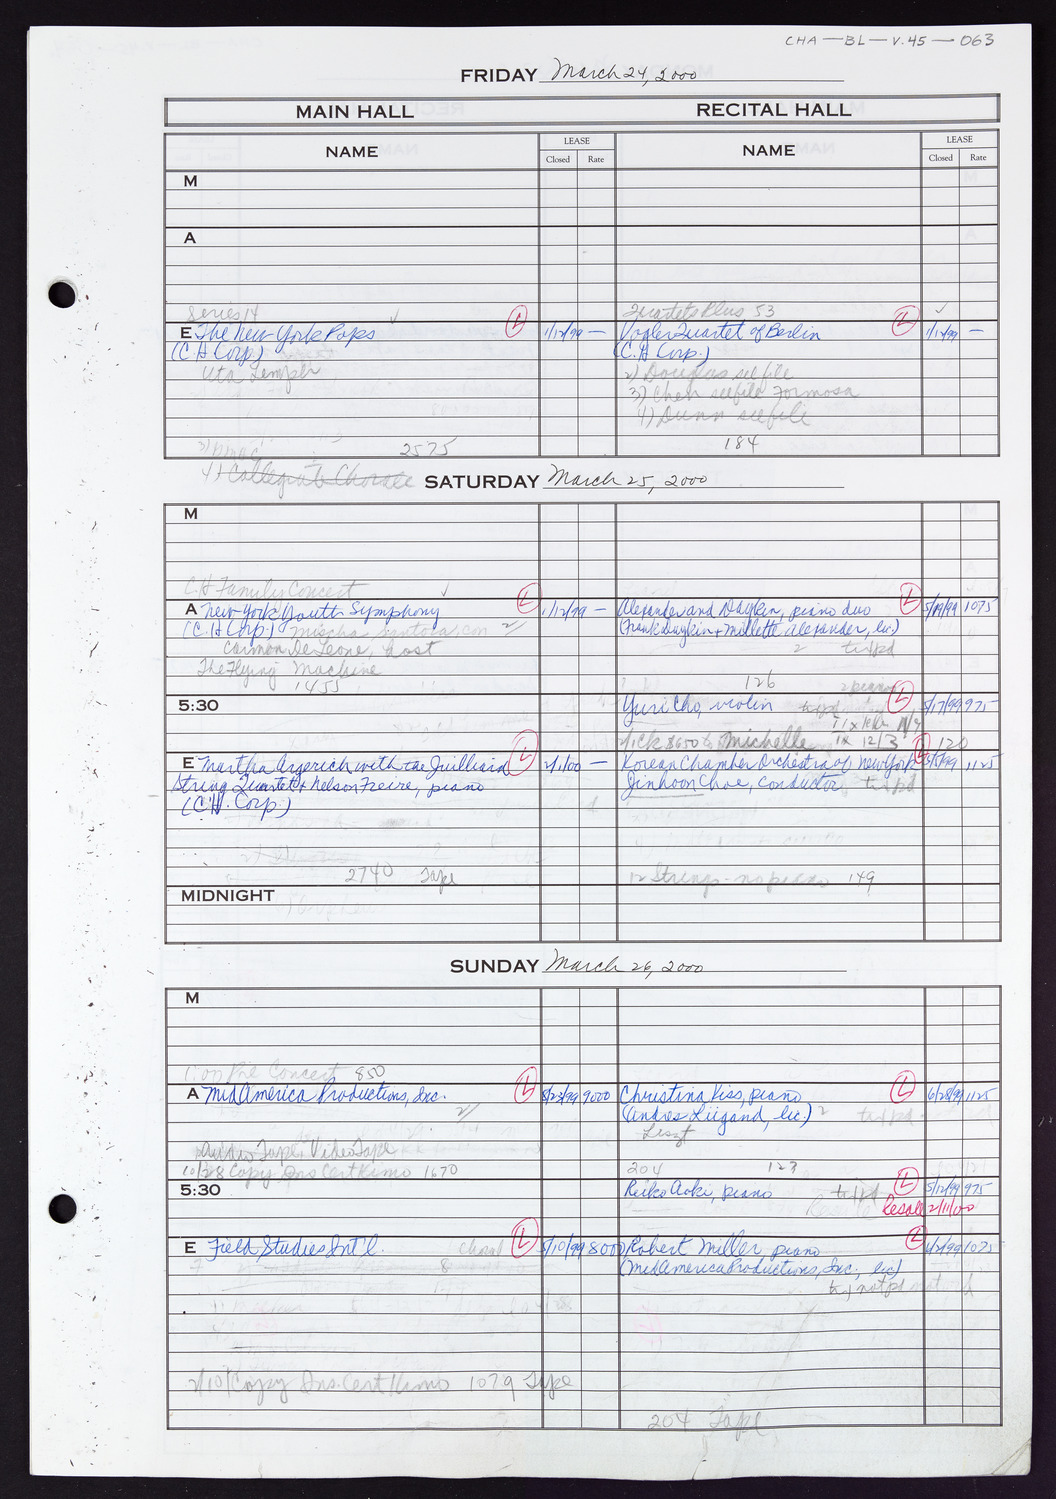 CHA-BL-V.45-063
FRIDAY March 24, 2000
MAIN HALL RECITAL HALL
NAME LEASE Closed Rate NAME LEASE Closed Rate
M
A
Series 14 Quartets Plus 53
E The New York Pops L 1/12/99 — Vogler Quartet of Berlin L 1/12/99 —
(C.H. Corp.) (C.H. Corp.)
Ute Lemper 2) Douglas see file
3) Chen see file Formosa
4) Dunn see file
2575 184
4) Collegiate Chorale
SATURDAY March 25, 2000
M
C.H. Family Concert
A New York Youth Symphony L 1/12/99 — Alexander and Daykin, piano duo L 5/19/99 1075
(C.H. Corp.) (Frank Daykin + Millette Alexander, lic.)
Carmon DeLeone, host 2 tix pd
The Flying Machine
1455 126 2 pianos
5:30 Yuri Cho, violin L 5/17/99 975
Michelle 12/3 120
E Martha Argerich with the Juilliard L 2/1/00 — Korean Chamber Orchestra of New York L 1125
String Quartet + Nelson Freire, piano Jinhoon Choe, conductor tix pd
(C.H. Corp.)
2740 Tape 12 Strings - no piano 149
MIDNIGHT
SUNDAY March 26, 2000
M
1:00 Pre Concert 850
A MidAmerica Productions, Inc. L 8/23/99 9000 Christina Kiss, piano L 6/28/99 1125
(Andres Liigand, lic.) 2
Liszt
Audio Tape, Video Tape
10/28 Copy Ins Cert Kimo 1670 204 123
5:30 Reiko Aoki, piano L 5/12/99 975
Resale 2/11/00
E Field Studies Int'l. choral L 5/10/99 8000 Robert Miller piano L 1075
8 (MidAmerica Productions, Inc., lic)
not pd
2/10 Copy Ins. Cert Kimo 1079 Tape
204 Tape